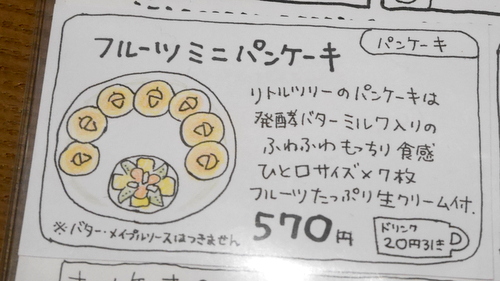 フルーツミニパンケーキ
パンケーキ
リトルツリーのパンケーキは
発酵バターミルク入りの
ふわふわもっちり食感
ひと口サイズ×7枚
フルーツたっぷり生クリーム付.
570円
ドリンク
20円引き
※バター・メイプルソースはつきません